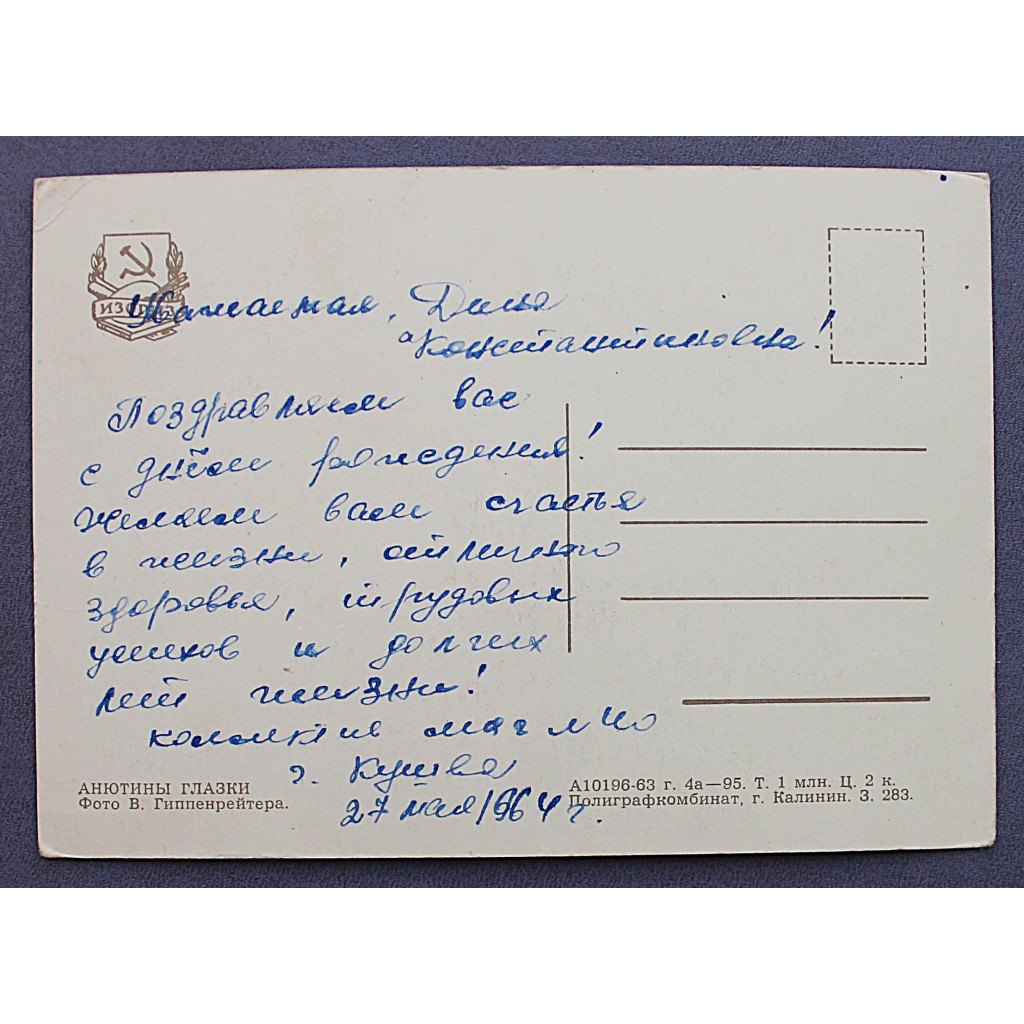 ИЗОГИЗ
Уважаемая, Дина
Константиновна!
Поздравляем вас
с днём рождения!
Желаем вам счастья
в жизни, отличного
здоровья, трудовых
успехов и долгих
лет жизни!
коллектив маг №40
г. Кушва
27 мая 1964 г.
АНЮТИНЫ ГЛАЗКИ
Фото В. Гиппенрейтера.
А10196-63 г. 4а—95. Т. 1 млн. Ц. 2 к.
Полиграфкомбинат, г. Калинин. З. 283.